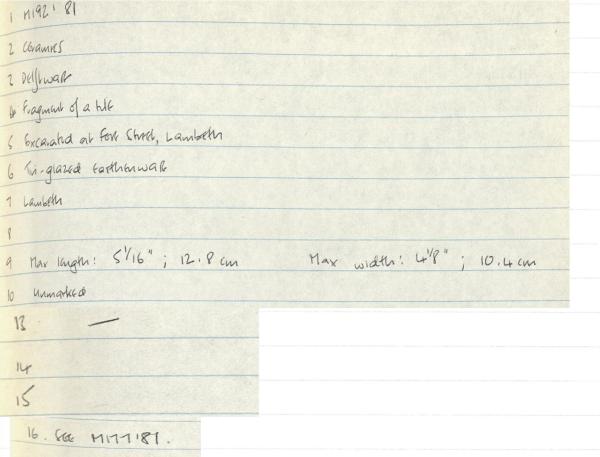 1 M192'81
2 Ceramics
3 Delftware
4 Fragment of a tile
5 Excavated at Fore Street, Lambeth
6 Tin-glazed earthenware
7 Lambeth
8
9 Max length: 5 1/16" ; 12.8 cm Max width: 4 1/8" ; 10.4 cm
10 Unmarked
13 —
14
15
16. SEE M177'81.